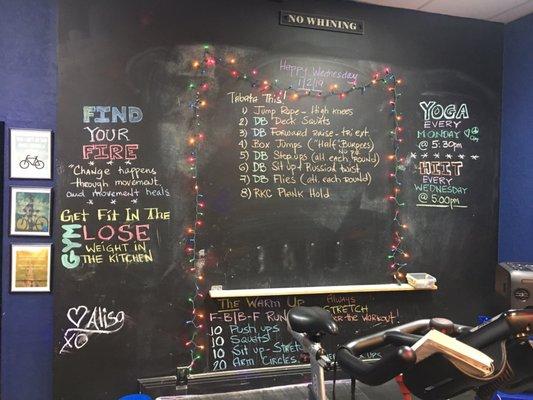 NO WHINING
Happy Wednesday
1/2/19
Tabata This!
1) Jump Rope - High knees
2) DB Deck Squats
3) DB Forward raise - tri ext.
4) Box Jumps ("Half Burpees)
5) DB Step ups (all each round)
6) DB Sit up & Russian twist
7) DB Flies (alt. each Round)
8) RKC Plank Hold
FIND
YOUR
FIRE
"Change happens
through movement
and movement heals
Get Fit In The
GYM LOSE
WEIGHT IN
THE KITCHEN
Alisa
XO
YOGA
EVERY
MONDAY
@ 5:30pm
HIIT
EVERY
WEDNESDAY
@ 5:00pm
THE WARM UP
F-B|B-F RUN
10 Push ups
10 Squats
10 Sit up - Stretch
20 Arm Circles
Always
STRETCH
after the workout!